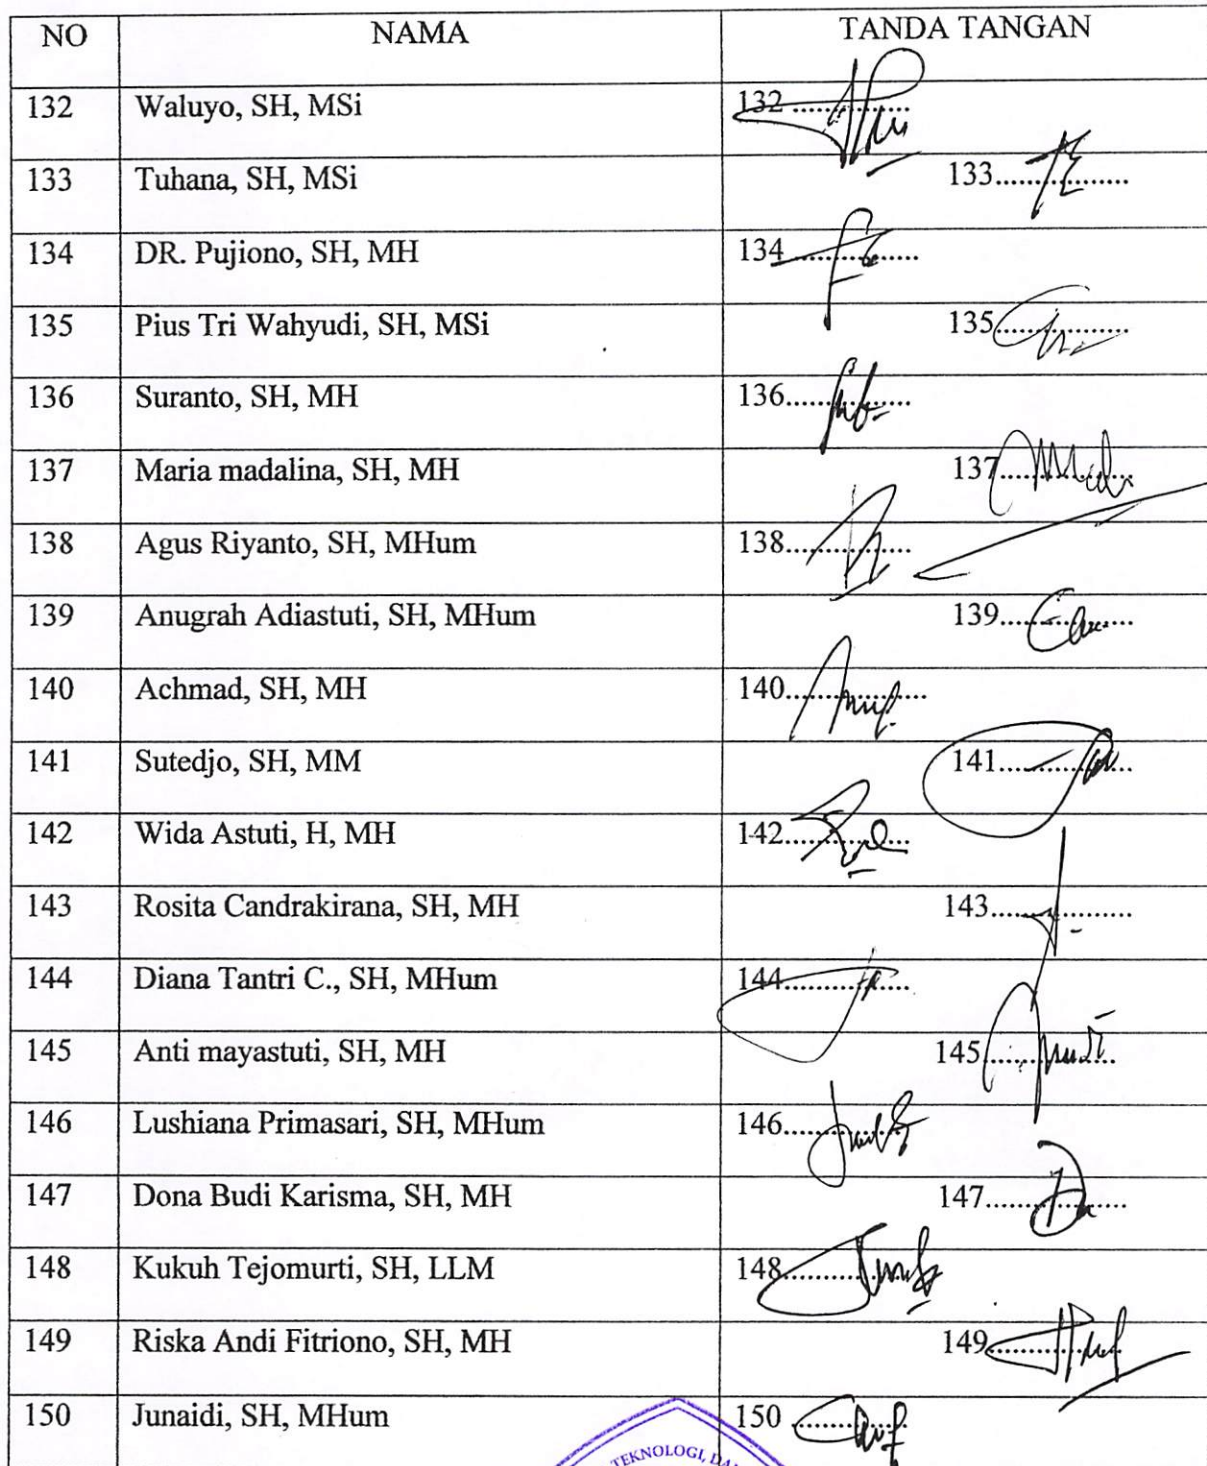 NO NAMA TANDA TANGAN
132 Waluyo, SH, MSi 132 ..................
133 Tuhana, SH, MSi 133...................
134 DR. Pujiono, SH, MH 134 ..................
135 Pius Tri Wahyudi, SH, MSi 135...................
136 Suranto, SH, MH 136..................
137 Maria madalina, SH, MH 137...................
138 Agus Riyanto, SH, MHum 138..................
139 Anugrah Adiastuti, SH, MHum 139...................
140 Achmad, SH, MH 140....................
141 Sutedjo, SH, MM 141...................
142 Wida Astuti, H, MH 142..................
143 Rosita Candrakirana, SH, MH 143....................
144 Diana Tantri C., SH, MHum 144..................
145 Anti mayastuti, SH, MH 145...................
146 Lushiana Primasari, SH, MHum 146..................
147 Dona Budi Karisma, SH, MH 147....................
148 Kukuh Tejomurti, SH, LLM 148..................
149 Riska Andi Fitriono, SH, MH 149...................
150 Junaidi, SH, MHum 150 .................
TEKNOLOGI,